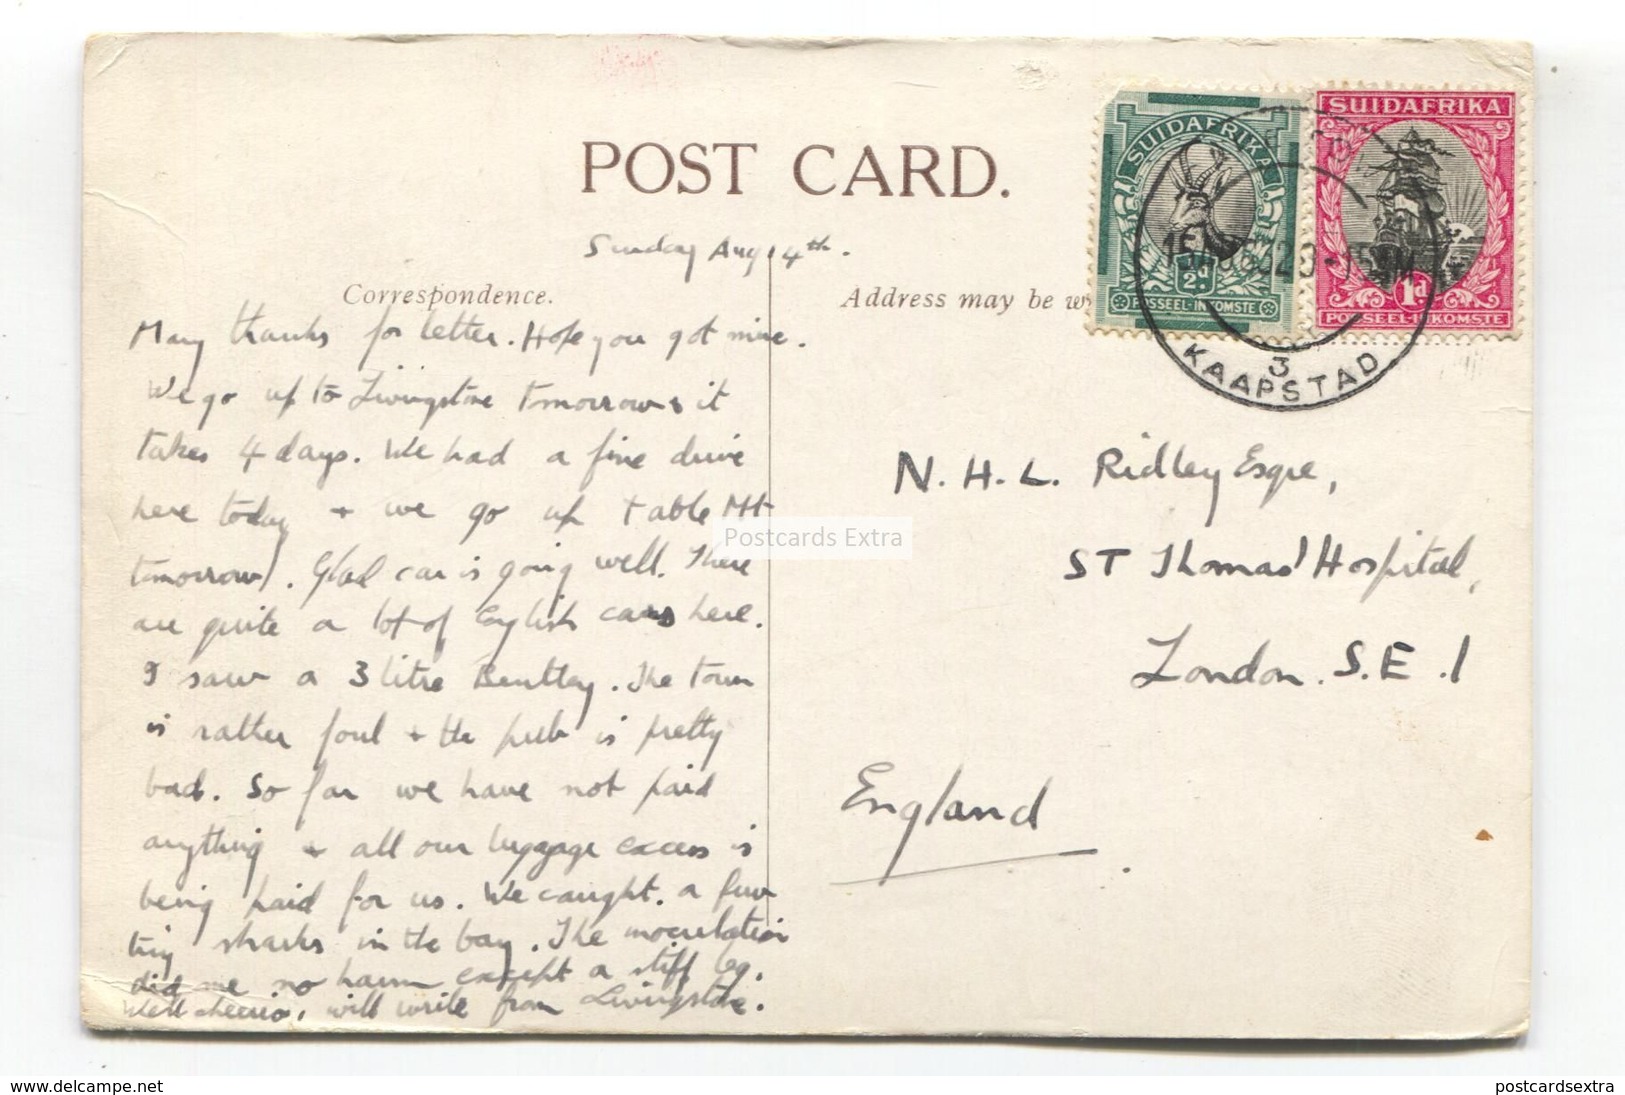 POST CARD.
Sunday Aug 14th.
Correspondence.
Address may be
Many thanks for letter. Hope you got mine.
We go up to Livingstone tomorrow & it
takes 4 days. We had a fine drive
here today + we go up Table Mt
tomorrow). Glad car is going well. There
are quite a lot of English cars here.
I saw a 3 litre Benttey. The town
is rather foul + the pub is pretty
bad. So far we have not paid
anything + all our luggage excess is
being paid for us. We caught. a few
tiny sharks in the bay. The inoculation
did me no harm except a stiff leg.
Well cheerio, will write from Livingstone.
SUIDAFRIKA
½d
POSSEEL-INKOMSTE
SUIDAFRIKA
1d
POSSEEL-INKOMSTE
3
KAAPSTAD
N. H. L. Ridley Esqre,
ST Thomas' Hospital,
London. S.E.1
England
Postcards Extra
www.delcampe.net
postcardsextra